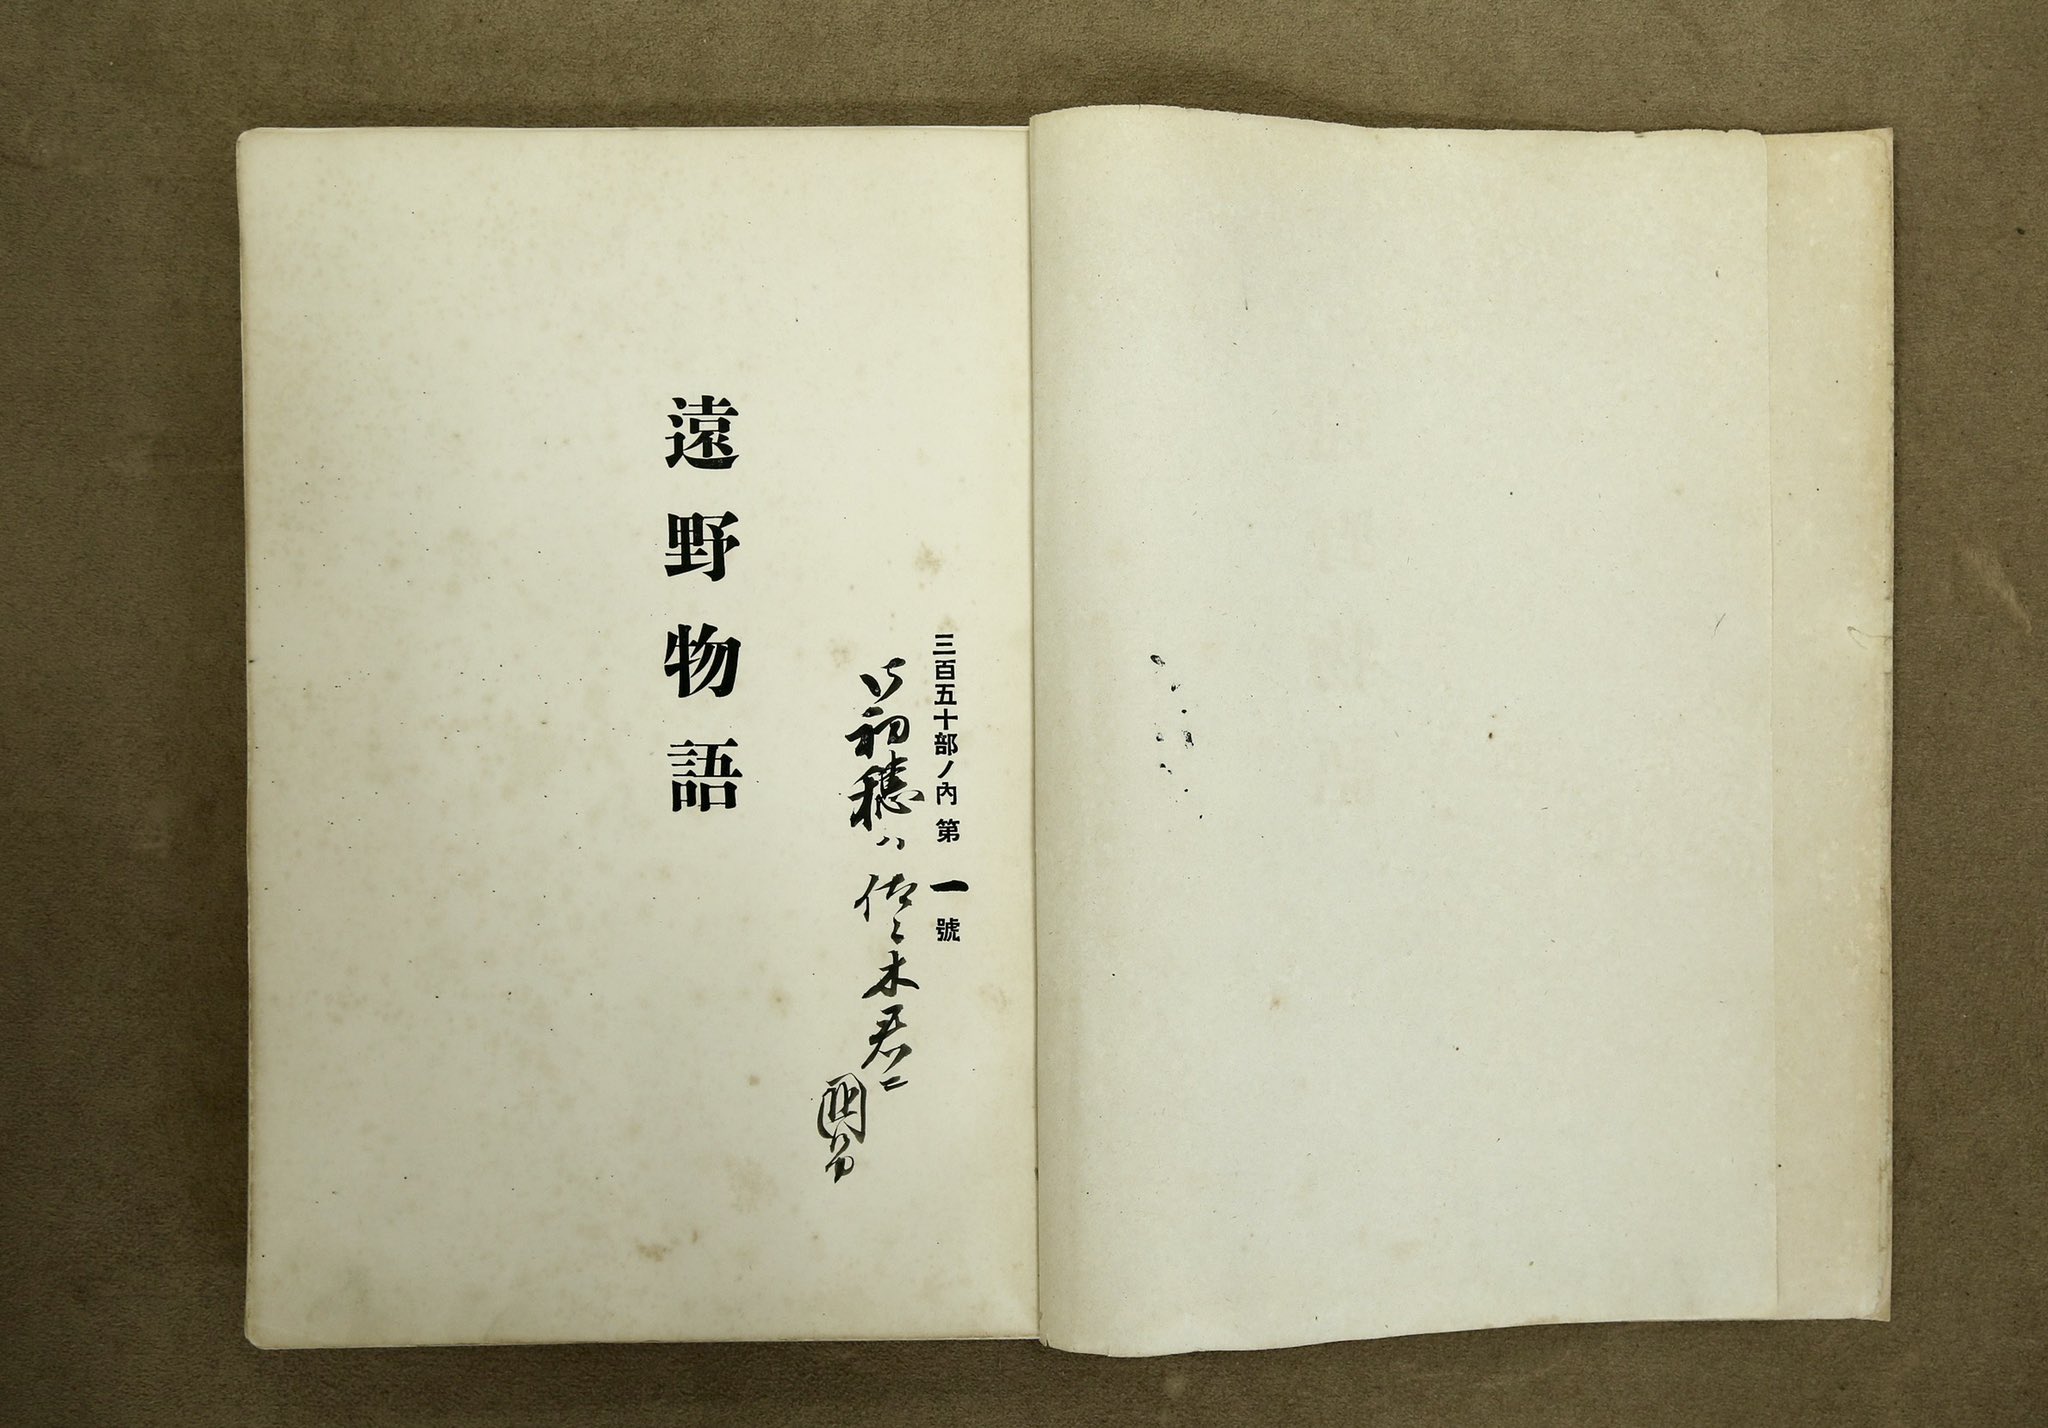 三百五十部ノ內第一號
御初穂ハ佐々木君ニ
國男
遠野物語